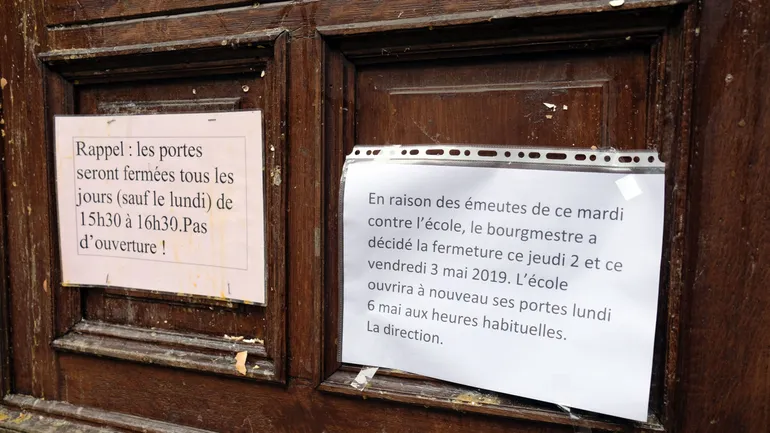 Rappel : les portes
seront fermées tous les
jours (sauf le lundi) de
15h30 à 16h30.Pas
d'ouverture !
En raison des émeutes de ce mardi
contre l'école, le bourgmestre a
décidé la fermeture ce jeudi 2 et ce
vendredi 3 mai 2019. L'école
ouvrira à nouveau ses portes lundi
6 mai aux heures habituelles.
La direction.